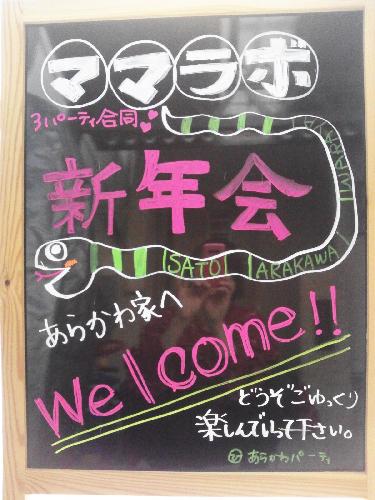 ママラボ
3パーティ合同
新年会
SATO ARAKAWA
あらかわ家へ
Welcome!!
どうぞごゆっくり
楽しんでいって下さい。
あらかわパーティ